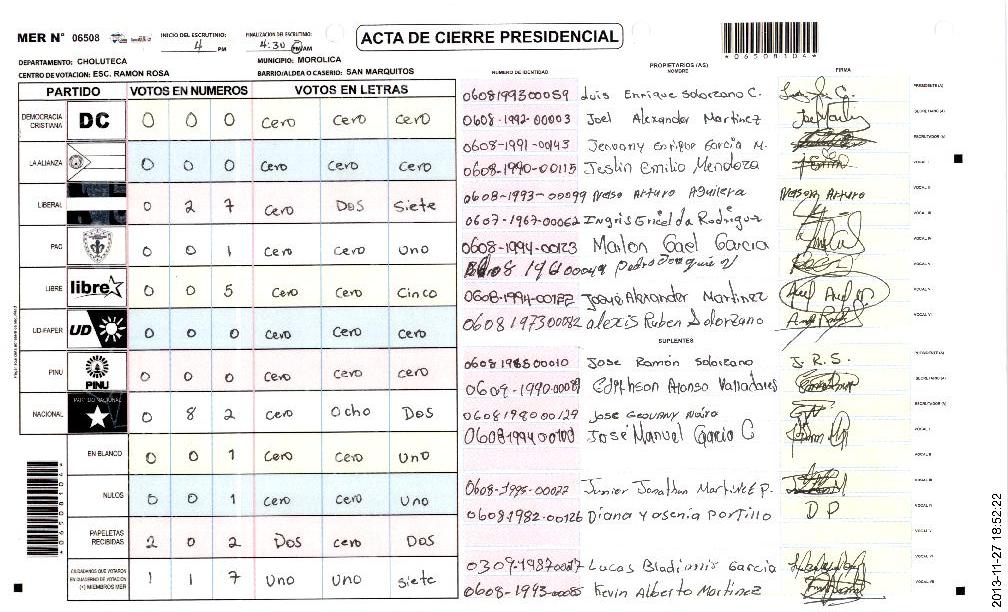 MER N° 06508
INICIO DEL ESCRUTINIO: 4 PM
FINALIZACION DEL ESCRUTINIO: 4:30 PM AM
ACTA DE CIERRE PRESIDENCIAL
*06508104*
DEPARTAMENTO: CHOLUTECA
MUNICIPIO: MOROLICA
CENTRO DE VOTACION: ESC. RAMÓN ROSA
BARRIO/ALDEA O CASERIO: SAN MARQUITOS
PARTIDO VOTOS EN NUMEROS VOTOS EN LETRAS
DEMOCRACIA CRISTIANA DC 0 0 0 Cero Cero Cero
LA ALIANZA 0 0 0 Cero Cero Cero
LIBERAL 0 2 7 Cero Dos Siete
PAC 0 0 1 Cero Cero Uno
LIBRE libre 0 0 5 Cero Cero Cinco
UD-FAPER UD 0 0 0 Cero Cero Cero
PINU PINU 0 0 0 Cero Cero Cero
NACIONAL PARTIDO NACIONAL 0 8 2 Cero Ocho Dos
EN BLANCO 0 0 1 Cero Cero Uno
NULOS 0 0 1 Cero Cero Uno
PAPELETAS RECIBIDAS 2 0 2 Dos cero Dos
CIUDADANOS QUE VOTARON EN CUADERNO DE VOTACION (+) MIEMBROS MER 1 1 7 Uno Uno siete
*06508104*
NUMERO DE IDENTIDAD PROPIETARIOS (AS) NOMBRE FIRMA
0608199300059 Luis Enrique Solorzano C. PRESIDENTE(A)
0608-1992-00003 Joel Alexander Martinez SECRETARIO (A)
0608-1991-00143 Enrique Garcia M. ESCRUTADOR (A)
0608-1990-00115 Jeslin Emilio Mendoza VOCAL I
0608-1993-00099 Arturo Aguilera Nelson Arturo VOCAL II
0607-1967-00062 Ingris Ericelda Rodriguez VOCAL III
0608-1994-00123 Marlon Gael Garcia VOCAL IV
Pedro Joaquin VOCAL V
0608-1994-00122 Josué Alexander Martinez VOCAL V
0608197300082 alexis Ruben Solorzano VOCAL VI
SUPLENTES
0608198500010 Jose Ramón Solorzano J. R. S. PRESIDENTE(A)
Alonso Valladares SECRETARIO (A)
0608198000129 Jose Geovany ESCRUTADOR (A)
0608199400100 José Manuel Garcia C VOCAL I
VOCAL II
0608-1995-00022 Junior Jonathan Martinez P. VOCAL III
06081982-00126 Diana Yosenia Portillo D P VOCAL IV
VOCAL V
Lucas Garcia VOCAL VI
0608-1993-00085 Kevin Alberto Martinez VOCAL VII
2013-11-27 18:52:22